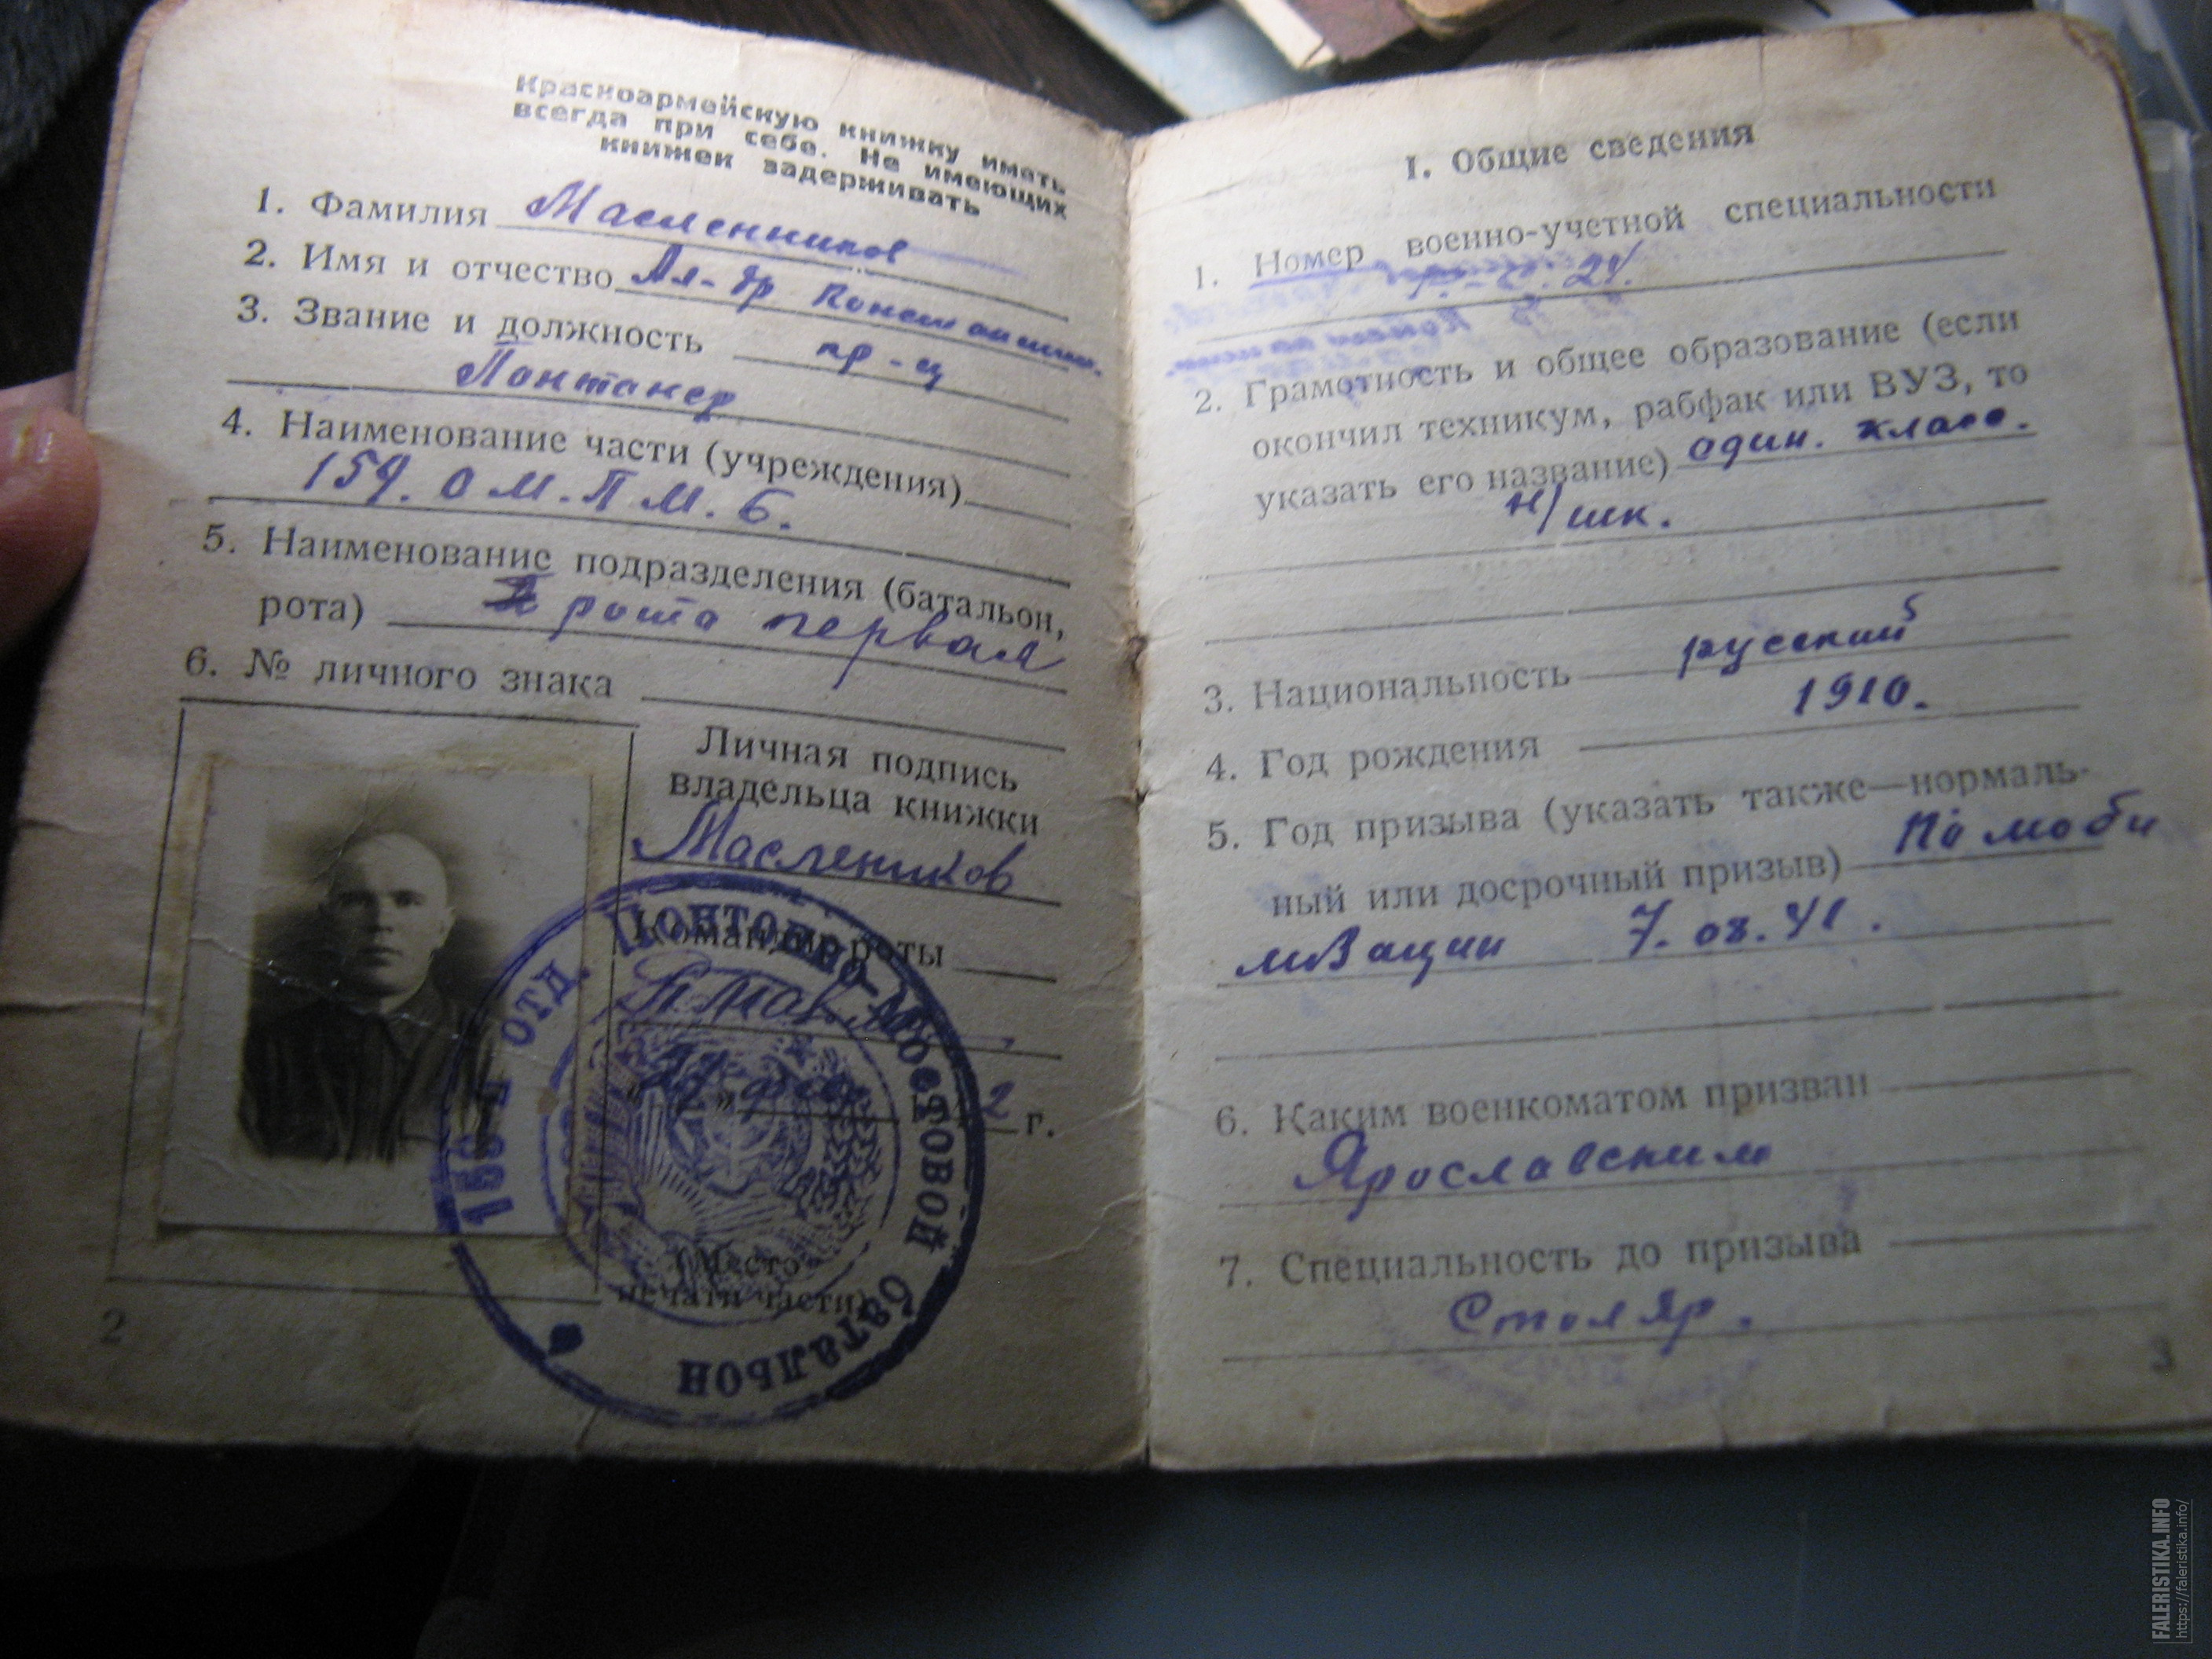 Красноармейскую книжку иметь
всегда при себе. Не имеющих
книжек задерживать
1. Фамилия Масленников
2. Имя и отчество Ал-др Константин.
3. Звание и должность кр-ц
Понтанер
4. Наименование части (учреждения)
159. О М. П М. Б.
5. Наименование подразделения (батальон,
рота) рота первая
6. № личного знака
Личная подпись
владельца книжки
Маслеников
Командир роты
г.
(Место
печати части)
ОТД. ПОНТОННО-МОСТОВОЙ БАТАЛЬОН
2
I. Общие сведения
1. Номер военно-учетной специальности
2. Грамотность и общее образование (если
окончил техникум, рабфак или ВУЗ, то
указать его название) один. класс.
н/шк.
3. Национальность русский
4. Год рождения 1910.
5. Год призыва (указать также—нормаль-
ный или досрочный призыв) По моби
лизации 7.08.41.
6. Каким военкоматом призван
Ярославским
7. Специальность до призыва
Столяр.
3
FALERISTIKA.INFO
https://faleristika.info/